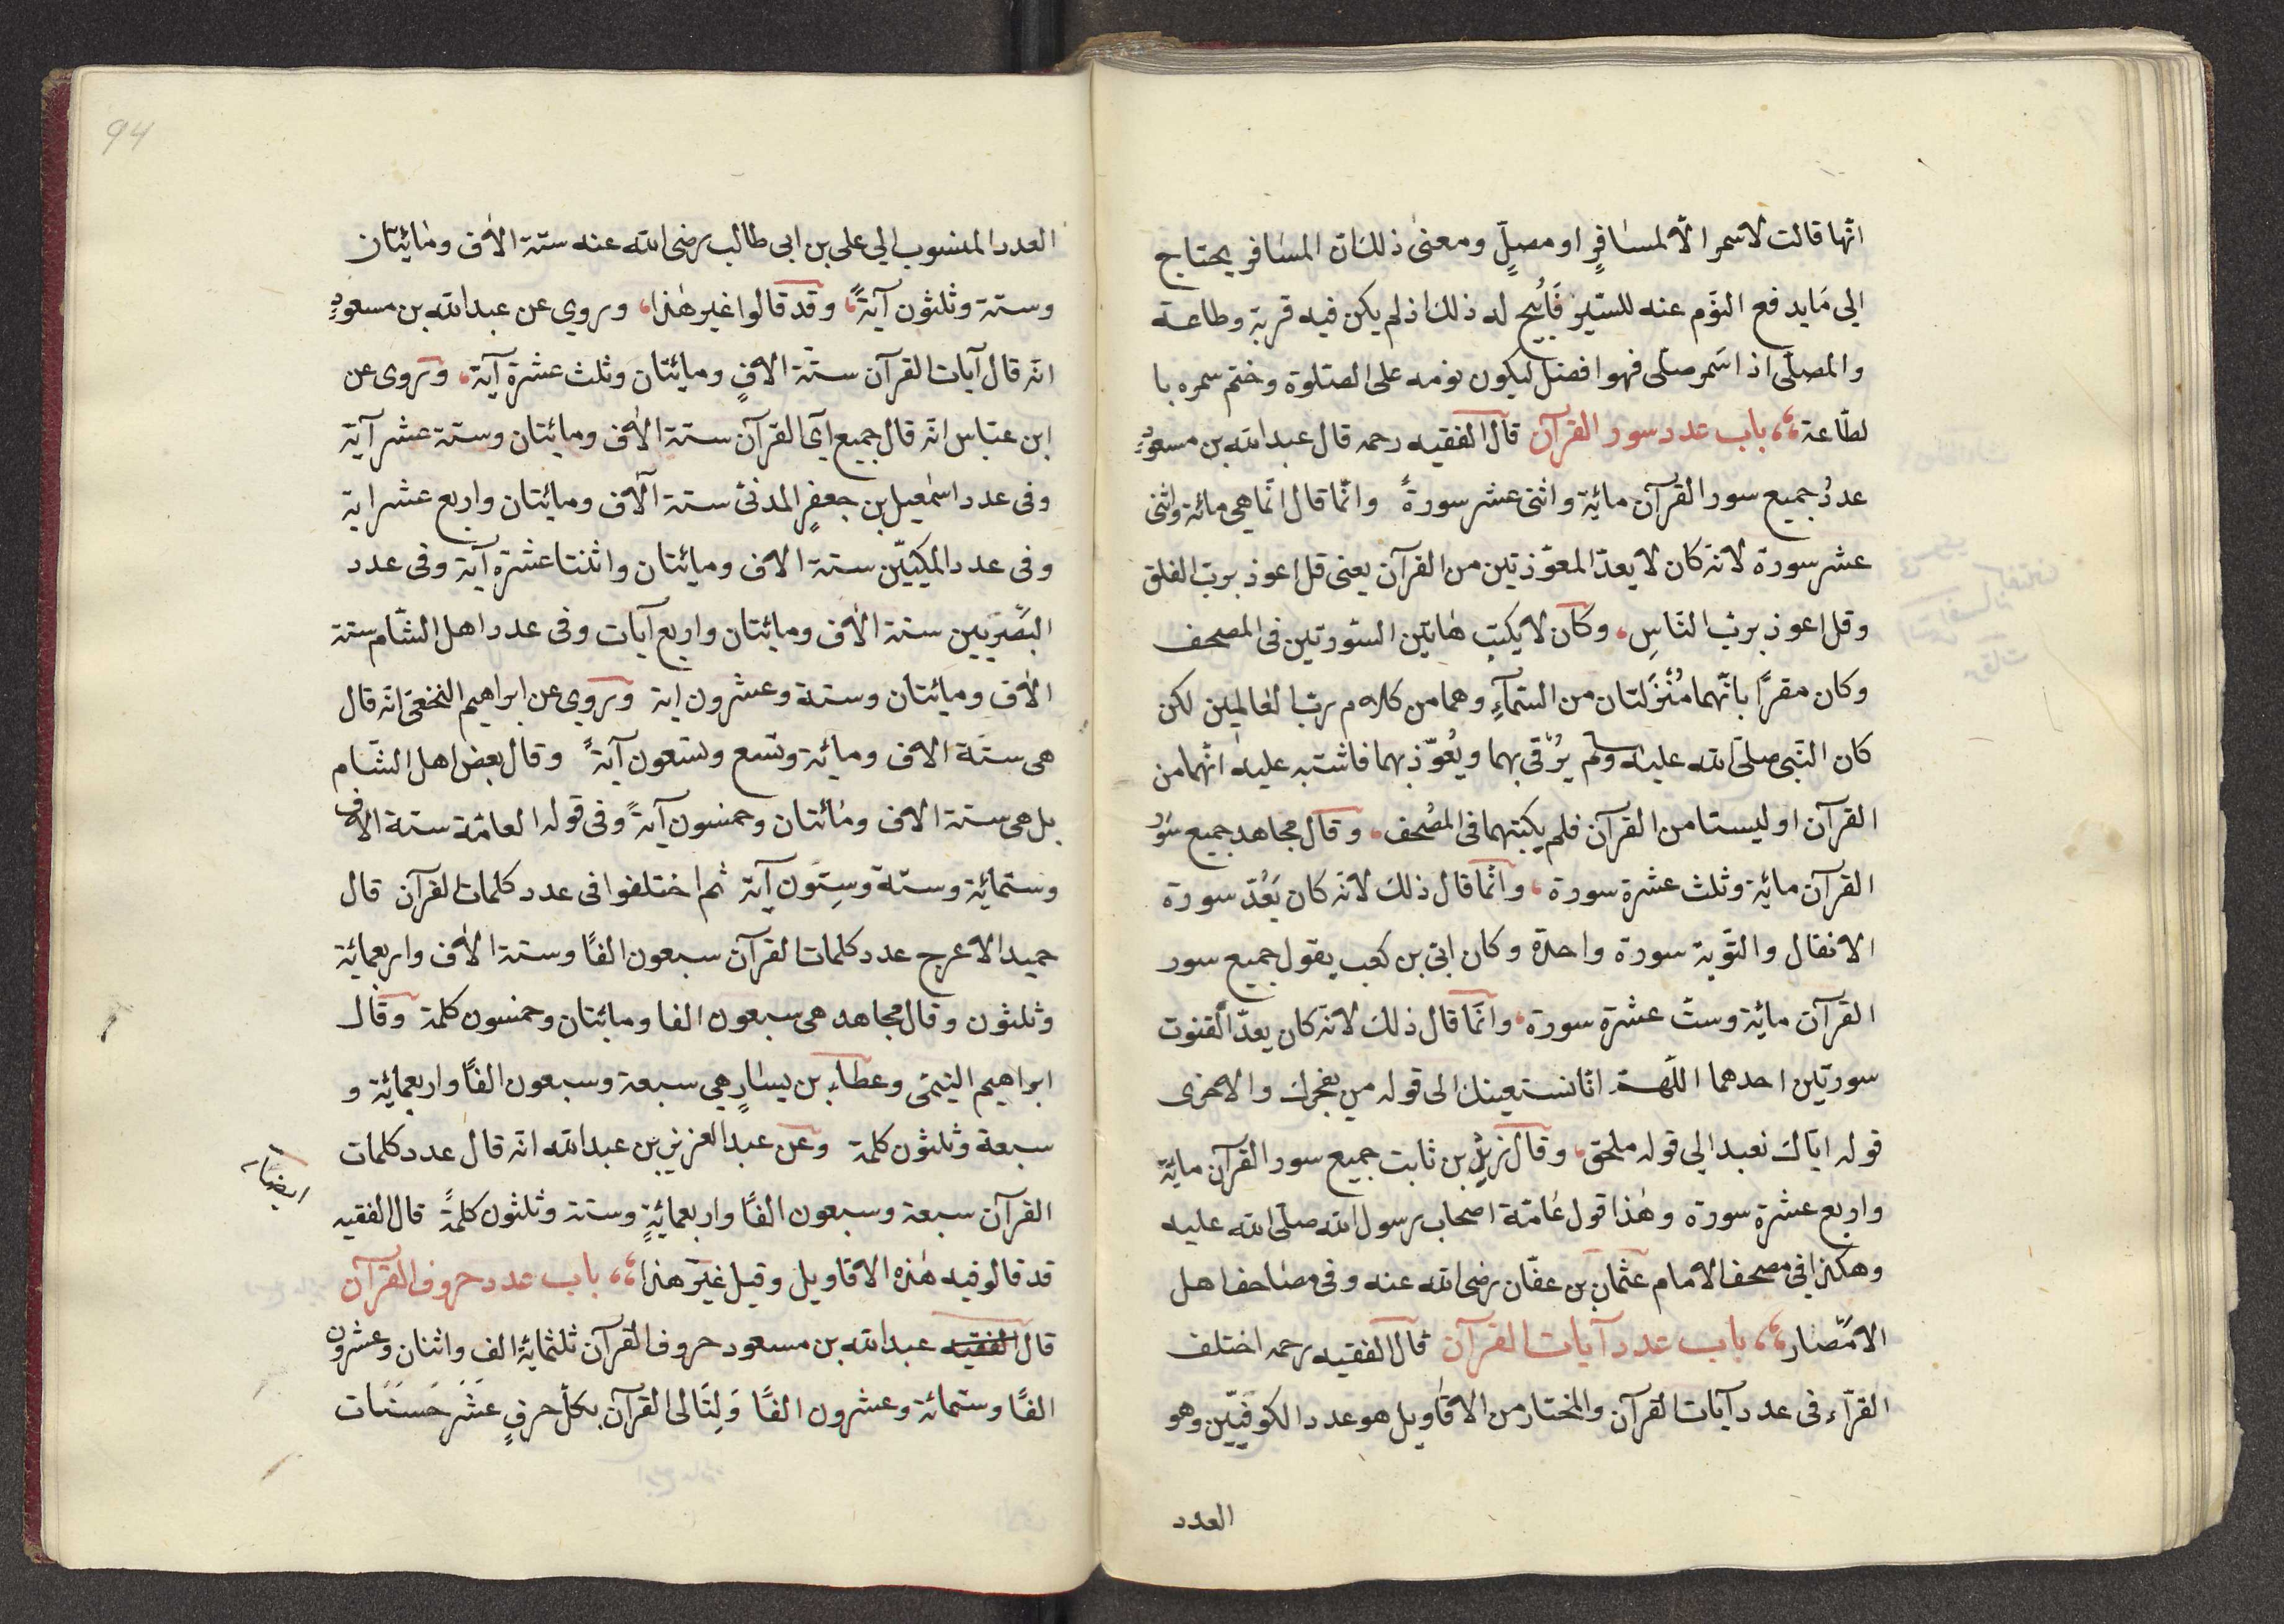 انّها قالت لا سمر الّا لمسافرٍ او مصلٍّ ومعنى ذلك انّ المسافر يحتاج
الي مَا يدفع النّوم عنه للسّير فَأُبيح له ذلك اذ لم يكن فيه قربة وطاعة
والمصلّى اذا سَمر صلّى فهوا فضل ليكون نومه على الصّلوة وختم سمره با
لطّاعة ،، باب عدد سور القرآن قال الفقيه رحمه قال عبد الله بن مسعودٍ
عددُ جميع سور القرآن مائة واثنى عشر سورةً وانّما قال انّما هى مائة واثنى
عشر سورة لانّه كان لا يعدّ المعوّذتين من القرآن يعنى قل اعوذ بربّ الفلق
وقل اعوذ بربّ النّاسِ ، وكان لا يكتب هاتين السّورتين فى المصحف
وكان مقرًّا بانّهما مُنْزَلتان من السّمآءِ وهما من كلام ربّ العالمين لكن
كان النّبى صلّى الله عليه وسلم يرْقى بهما ويُعوّذ بهما فاشتبه عليه انّهما من
القرآن او ليستا من القرآن فلم يكتبهما فى المصُحف ، وقال مجاهد جميع سَوُر
القرآن مائة وثلث عشرة سورة ، وانّما قال ذلك لانّه كان يَعُدّ سورة
الانفال والتّوبة سورة واحدة وكان ابىّ بن كعب يقول جميع سور
القرآن مائة وستّ عشرة سورة ، وانّما قال ذلك لانّه كان يعدّ القنوت
سورتين احدهما اللّهمّ انّا نستعينك الى قوله من يفجرك والاخرى
قوله ايّاك نعبد الي قوله ملحق ، وقال زيد بن ثابت جميع سور القرآن مائة
واربع عشرة سورة وهٰذا قول عامّة اصحاب رسول الله صلّى الله عليه
وهكذا في مصحف الامام عثمان بن عفّان رضى الله عنه وفى مصاحف اهل
الامْصار ،، باب عدد آيات القرآن قال الفقيه رحمه اختلف
القرّآء فى عدد آيات القرآن والمختار من الاقاويل هو عدد الكوفييّن وهو
العدد
94
العدد المنسوب الي على بن ابى طالب رضى الله عنه ستة الاف ومائيتان
وستة وثلثون آيةً ، وقد قالوا غير هٰذا ، وروي عن عبد الله بن مسعودٍ
انّه قال آيات القرآن ستّة الافٍ ومائيتان وثلث عشرة آية ، وروى عن
ابن عبّاس انّه قال جميع آي القرآن ستة الاف ومائيتان وستة عشر آية
وفى عدد اسمعيل بن جعفرٍ المدنىّ ستة آلاف ومائيتان واربع عشر اية
وفى عدد المكييّن ستة الاف ومائيتان واثنتا عشرة آية وفى عدد
البصَّريّين ستة الاف ومائيتان واربع آيات وفى عدد اهل الشّام ستة
الاف ومائيتان وستة وعشرون اية وروي عن ابراهيم النخعىّ انّه قال
هى ستّة الاف ومائة وتسع وتسعون آيةً وقال بعض اهل الشّام
بل هى ستة الاف ومائتان وخمسون آيةً وفى قوله العامّة ستة الاف
وستمائة وستّة وسِتوّن آية ثم اختلفوا فى عدد كلمات القرآن قال
حميد الاعرج عدد كلمات القرآن سبعون الفًا وستة الاف واربعمائة
وثلثون وقال مجاهد هى سبعون الفا ومائتان وخمسون كلمة وقال
ابراهيم التيمّى وعطاء بن يسارٍ هى سبعة وسبعون الفًا واربعمائة و
سبعة وثلثون كلمة وعن عبد العزيز بن عبد الله انّه قال عدد كلمات
ايضاً
القرآن سبعة وسبعون الفًا واربعمائةٍ وستة وثلثون كلمةً قال الفقيه
قد قالو فيه هٰذه الاقاويل وقيل غير هذا ،، باب عدد حروف القرآن
قال الفقيه عبد الله بن مسعود حروف القرآن ثلثمائة الف واثنان وعشرون
الفًا وستمائة وعشرون الفًا وَلِتَالى القرآن بكلّ حرفٍ عَشَر حَسَنَات